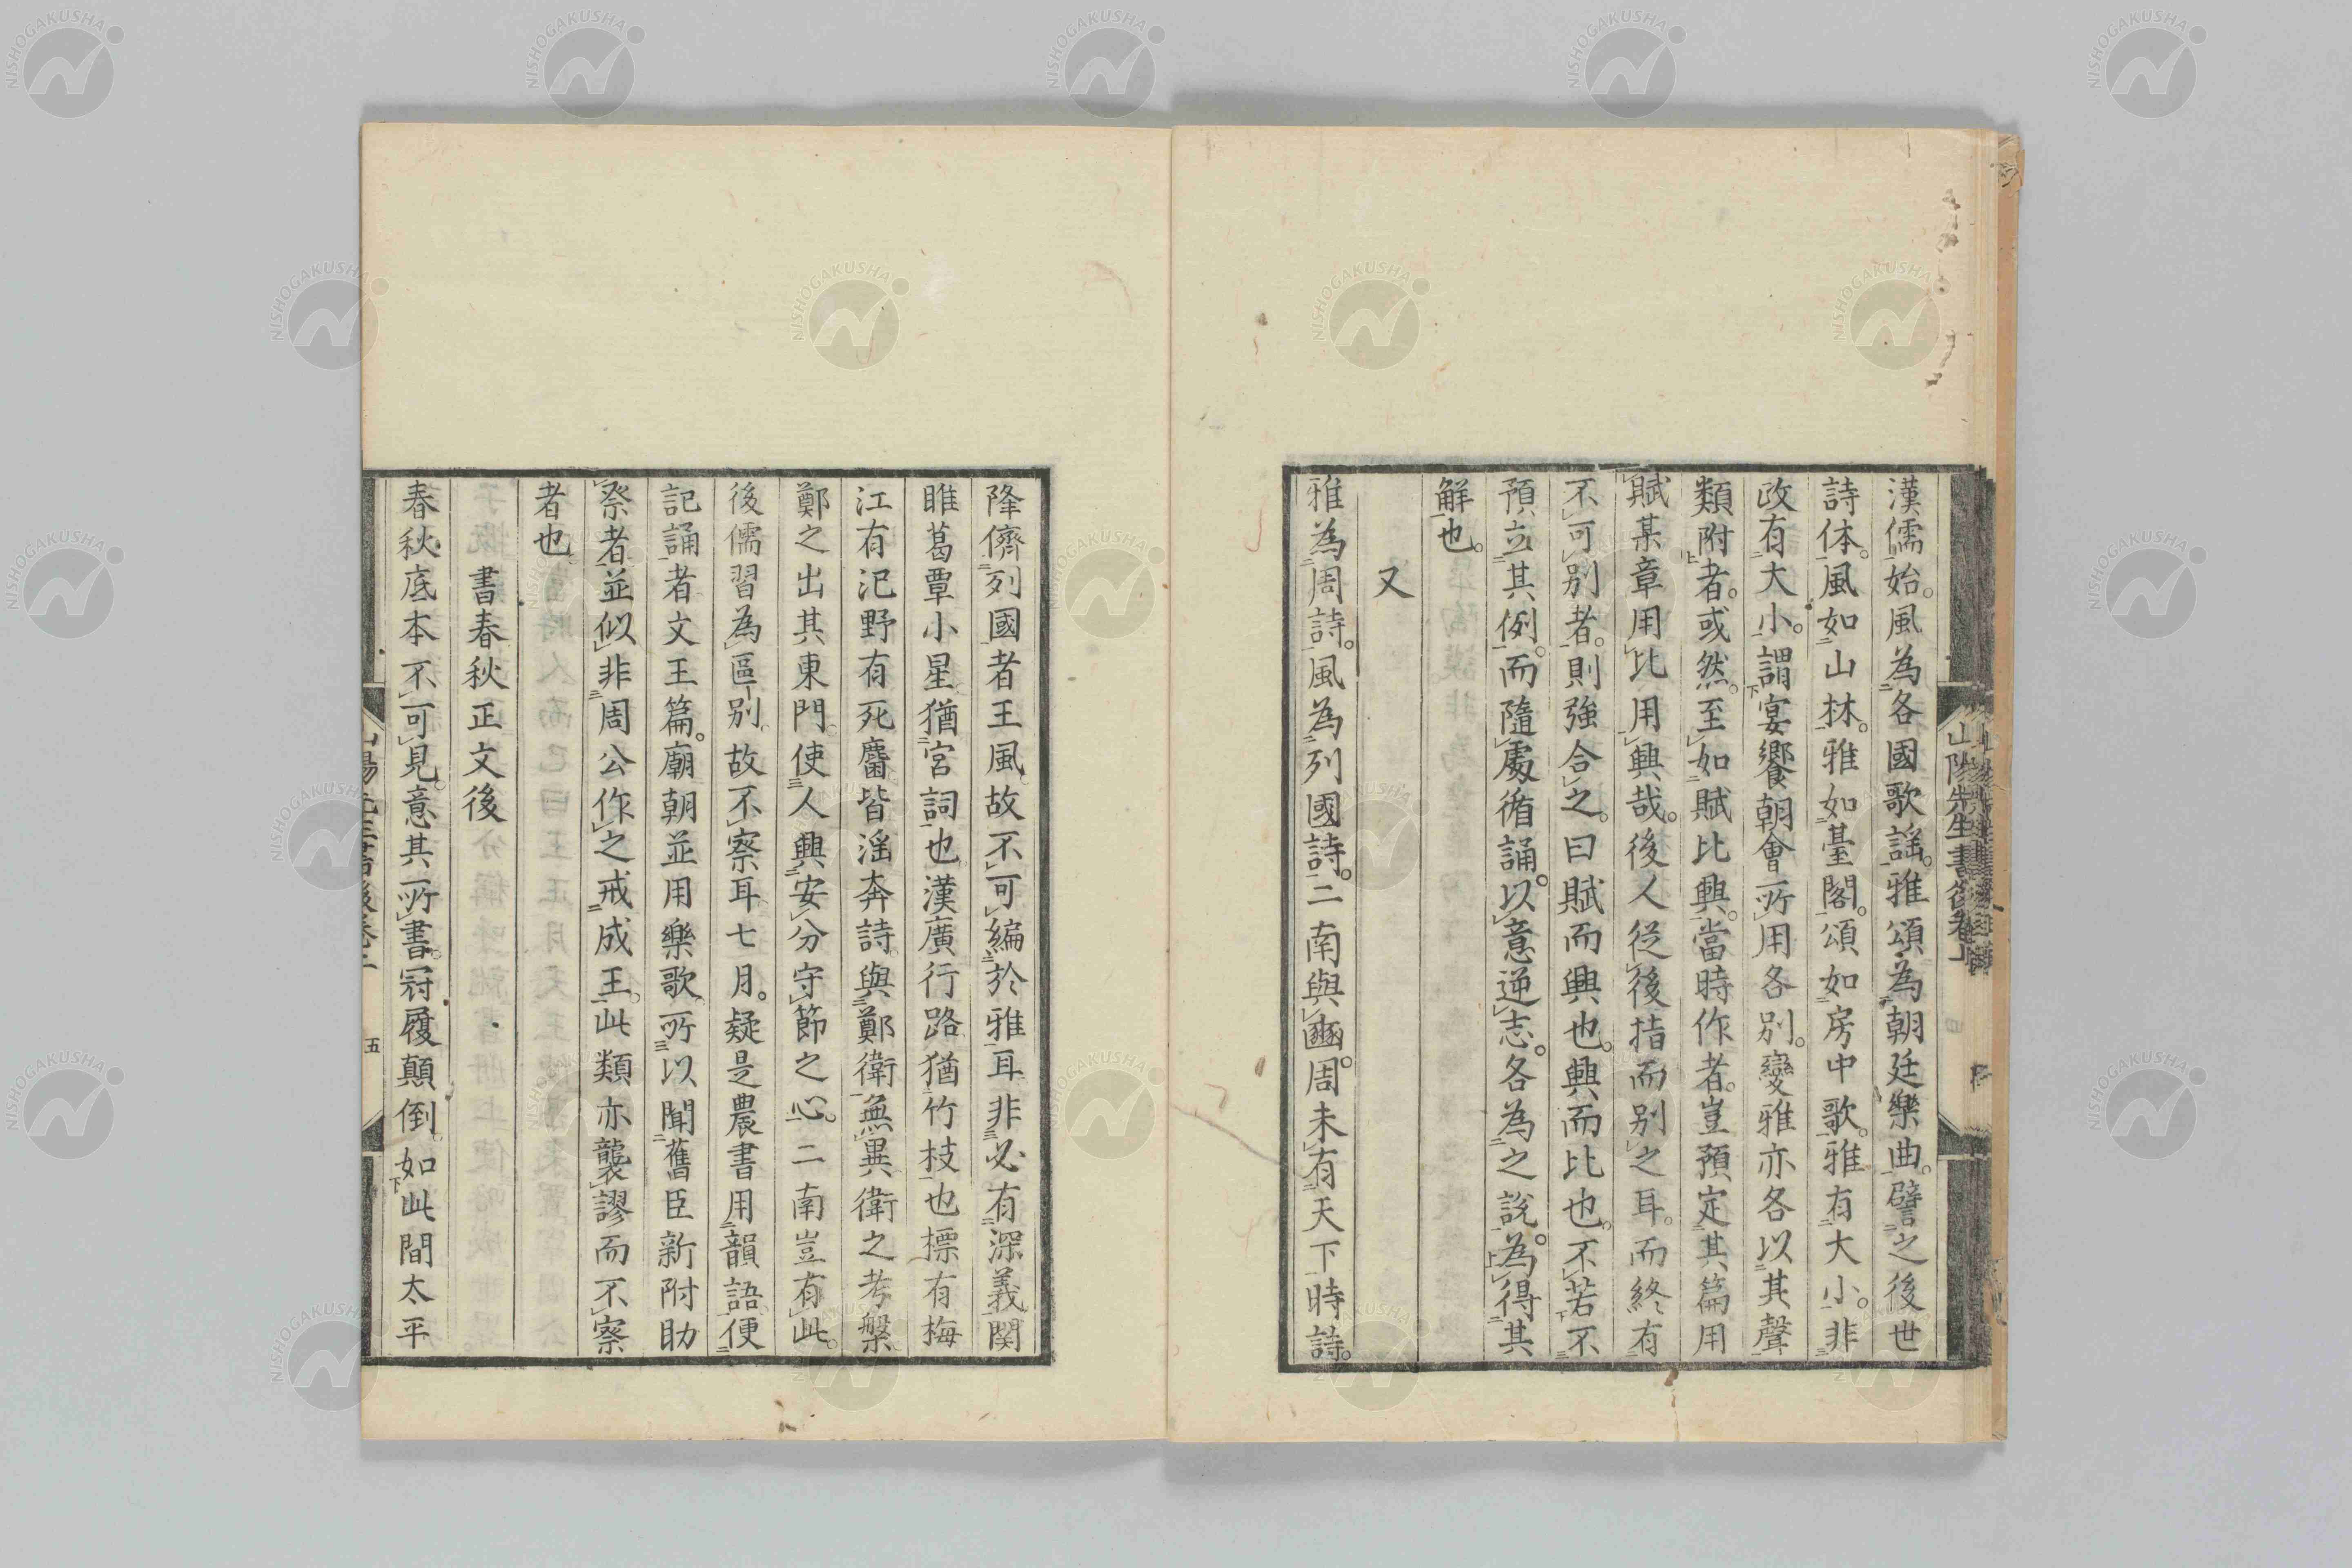 漢儒始。風為各國歌謡。雅頌為朝廷樂曲。譬之後世
詩体。風如山林。雅如臺閣。頌如房中歌。雅有大小。非
政有大小。謂宴饗朝會所用各別。變雅亦各以其聲
類附者。或然。至如賦比興。當時作者。豈預定其篇用
賦某章用比用興哉。後人従後指而別之耳。而終有
不可別者。則強合之。曰賦而興也。興而比也。不若不
預立其例。而隨處循誦。以意逆志。各為之説。為得其
解也。
又
雅為周詩。風為列國詩。二南與豳。周未有天下時詩。
降儕列國者王風。故不可編於雅耳。非必有深義。関
雎葛覃小星。猶宮詞也。漢廣行路。猶竹枝也。摽有梅
江有汜野有死麕。皆滛奔詩。與鄭衛無異。衛之考槃
鄭之出其東門。使人興安分守節之心。二南豈有此。
後儒習為區別。故不察耳。七月。疑是農書用韻語。便
記誦者。文王篇。廟朝並用樂歌。所以聞舊臣新附助
祭者。並似非周公作之戒成王。此類亦襲謬而不察
者也。
書春秋正文後
春秋底本不可見。意其所書。冠履顛倒。如此間太平
五
NISHOGAKUSHA